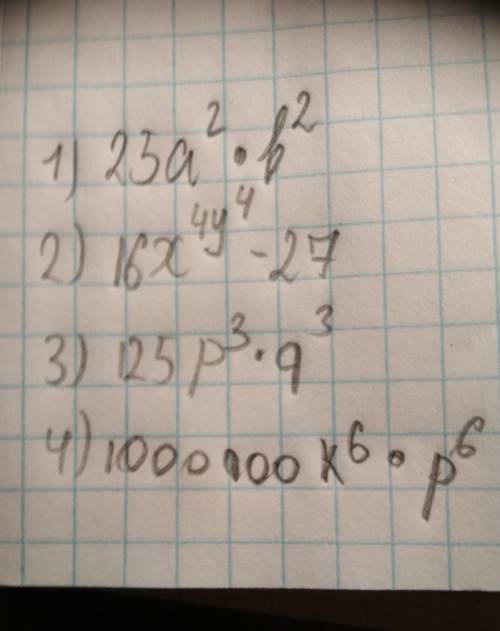 1) 25a² · b²
2) 16x⁴ʸ⁴ - 27
3) 125p³ · q³
4) 1000000k⁶ · p⁶